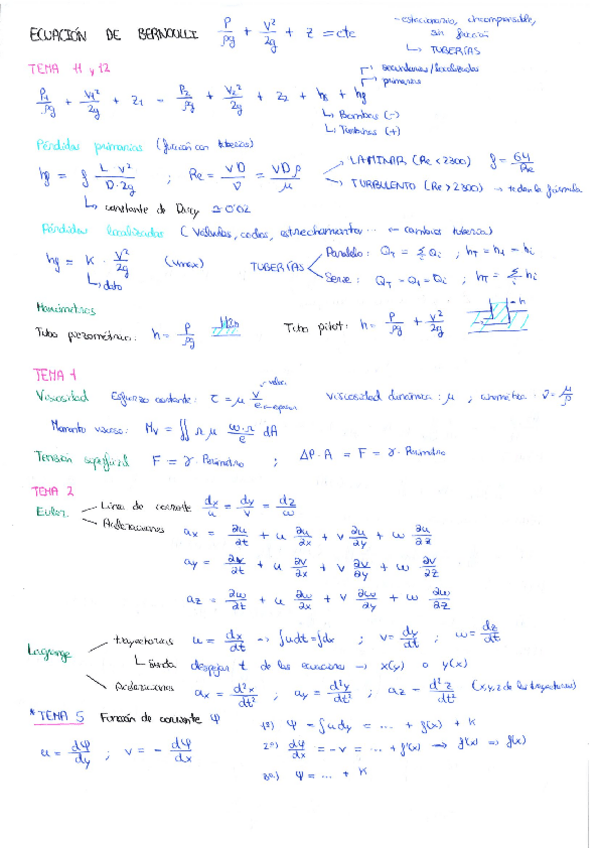 ECUACIÓN DE BERNOULLI P/ρg + V²/2g + z = cte
- estacionario, incompresible, sin fricción
↳ TUBERÍAS
TEMA 11 y 12
secundarias/localizadas
primarias
P₁/ρg + V₁²/2g + z₁ = P₂/ρg + V₂²/2g + z₂ + h_B + h_g
↳ Bombas (-)
↳ Turbinas (+)
Pérdidas primarias (fricción con tuberías)
h_g = f L·V²/D·2g ; Re = VD/ν = VDρ/μ
LAMINAR (Re < 2300) f = 64/Re
TURBULENTO (Re > 2300) → te dan la fórmula
↳ constante de Darcy ≃ 0'02
Pérdidas localizadas (Válvulas, codos, estrechamientos... ← cambios tubería)
h_g = K · V²/2g (vmax)
↳ dato
TUBERÍAS
Paralelo: Q_T = Σ Q_i ; h_T = h_1 = h_i
Serie: Q_T = Q_1 = Q_i ; h_T = Σ h_i
Manómetros
Tubo piezométrico: h = P/ρg
Tubo pitot: h = P/ρg + V²/2g
h
TEMA 1
Viscosidad Esfuerzo cortante: τ = μ V/e
veloc.
espesor
viscosidad dinámica: μ ; cinemática: ν = μ/ρ
Momento viscoso: M_V = ∬ r μ ω·r/e dA
Tensión superficial F = γ · Perímetro ; ΔP · A = F = γ · Perímetro
TEMA 2
Euler
Línea de corriente dx/u = dy/v = dz/w
Aceleraciones a_x = ∂u/∂t + u ∂u/∂x + v ∂u/∂y + w ∂u/∂z
a_y = ∂v/∂t + u ∂v/∂x + v ∂v/∂y + w ∂v/∂z
a_z = ∂w/∂t + u ∂w/∂x + v ∂w/∂y + w ∂w/∂z
Lagrange
trayectorias u = dx/dt → ∫udt = ∫dx ; v = dy/dt ; w = dz/dt
↳ Senda despejar t de las ecuaciones → x(y) o y(x)
Aceleraciones a_x = d²x/dt² ; a_y = d²y/dt² ; a_z = d²z/dt² (x,y,z de las trayectorias)
* TEMA 5 Función de corriente Ψ
u = dΨ/dy ; v = - dΨ/dx
1º) Ψ = ∫u dy = ... + f(x) + K
2º) dΨ/dx = -v = ... + f'(x) → f'(x) ⇒ f(x)
3º) Ψ = ... + K